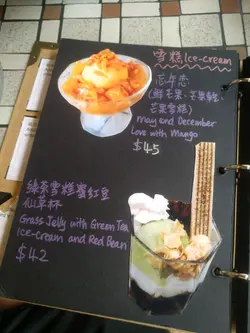 雪糕 Ice-cream
忘年恋
(鮮芒果、芒果
芒果雪糕)
May and December
Love with Mango
$45
綠茶雪糕蜜紅豆
仙草杯
Grass Jelly with Green Tea
Ice-cream and Red Bean
$42